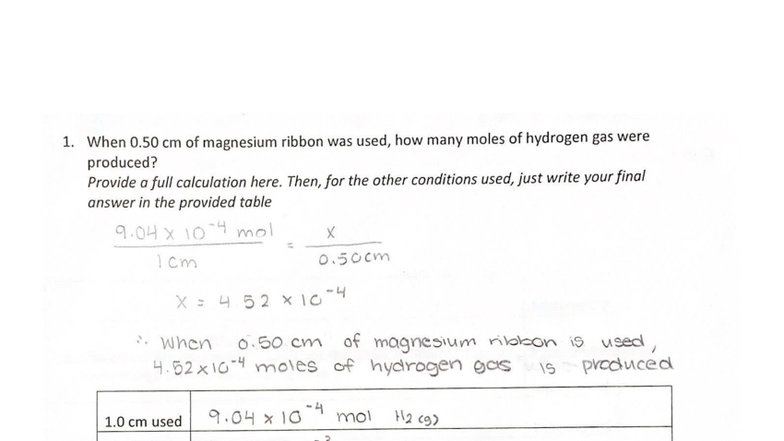 1. When 0.50 cm of magnesium ribbon was used, how many moles of hydrogen gas were
produced?
Provide a full calculation here. Then, for the other conditions used, just write your final
answer in the provided table
9.04 x 10⁻⁴ mol = x
1cm 0.50cm
x = 4 52 x 10⁻⁴
∴ When 0.50 cm of magnesium ribbon is used,
4.52x10⁻⁴ moles of hydrogen gas is produced
1.0 cm used 9.04 x 10⁻⁴ mol H2 (g)